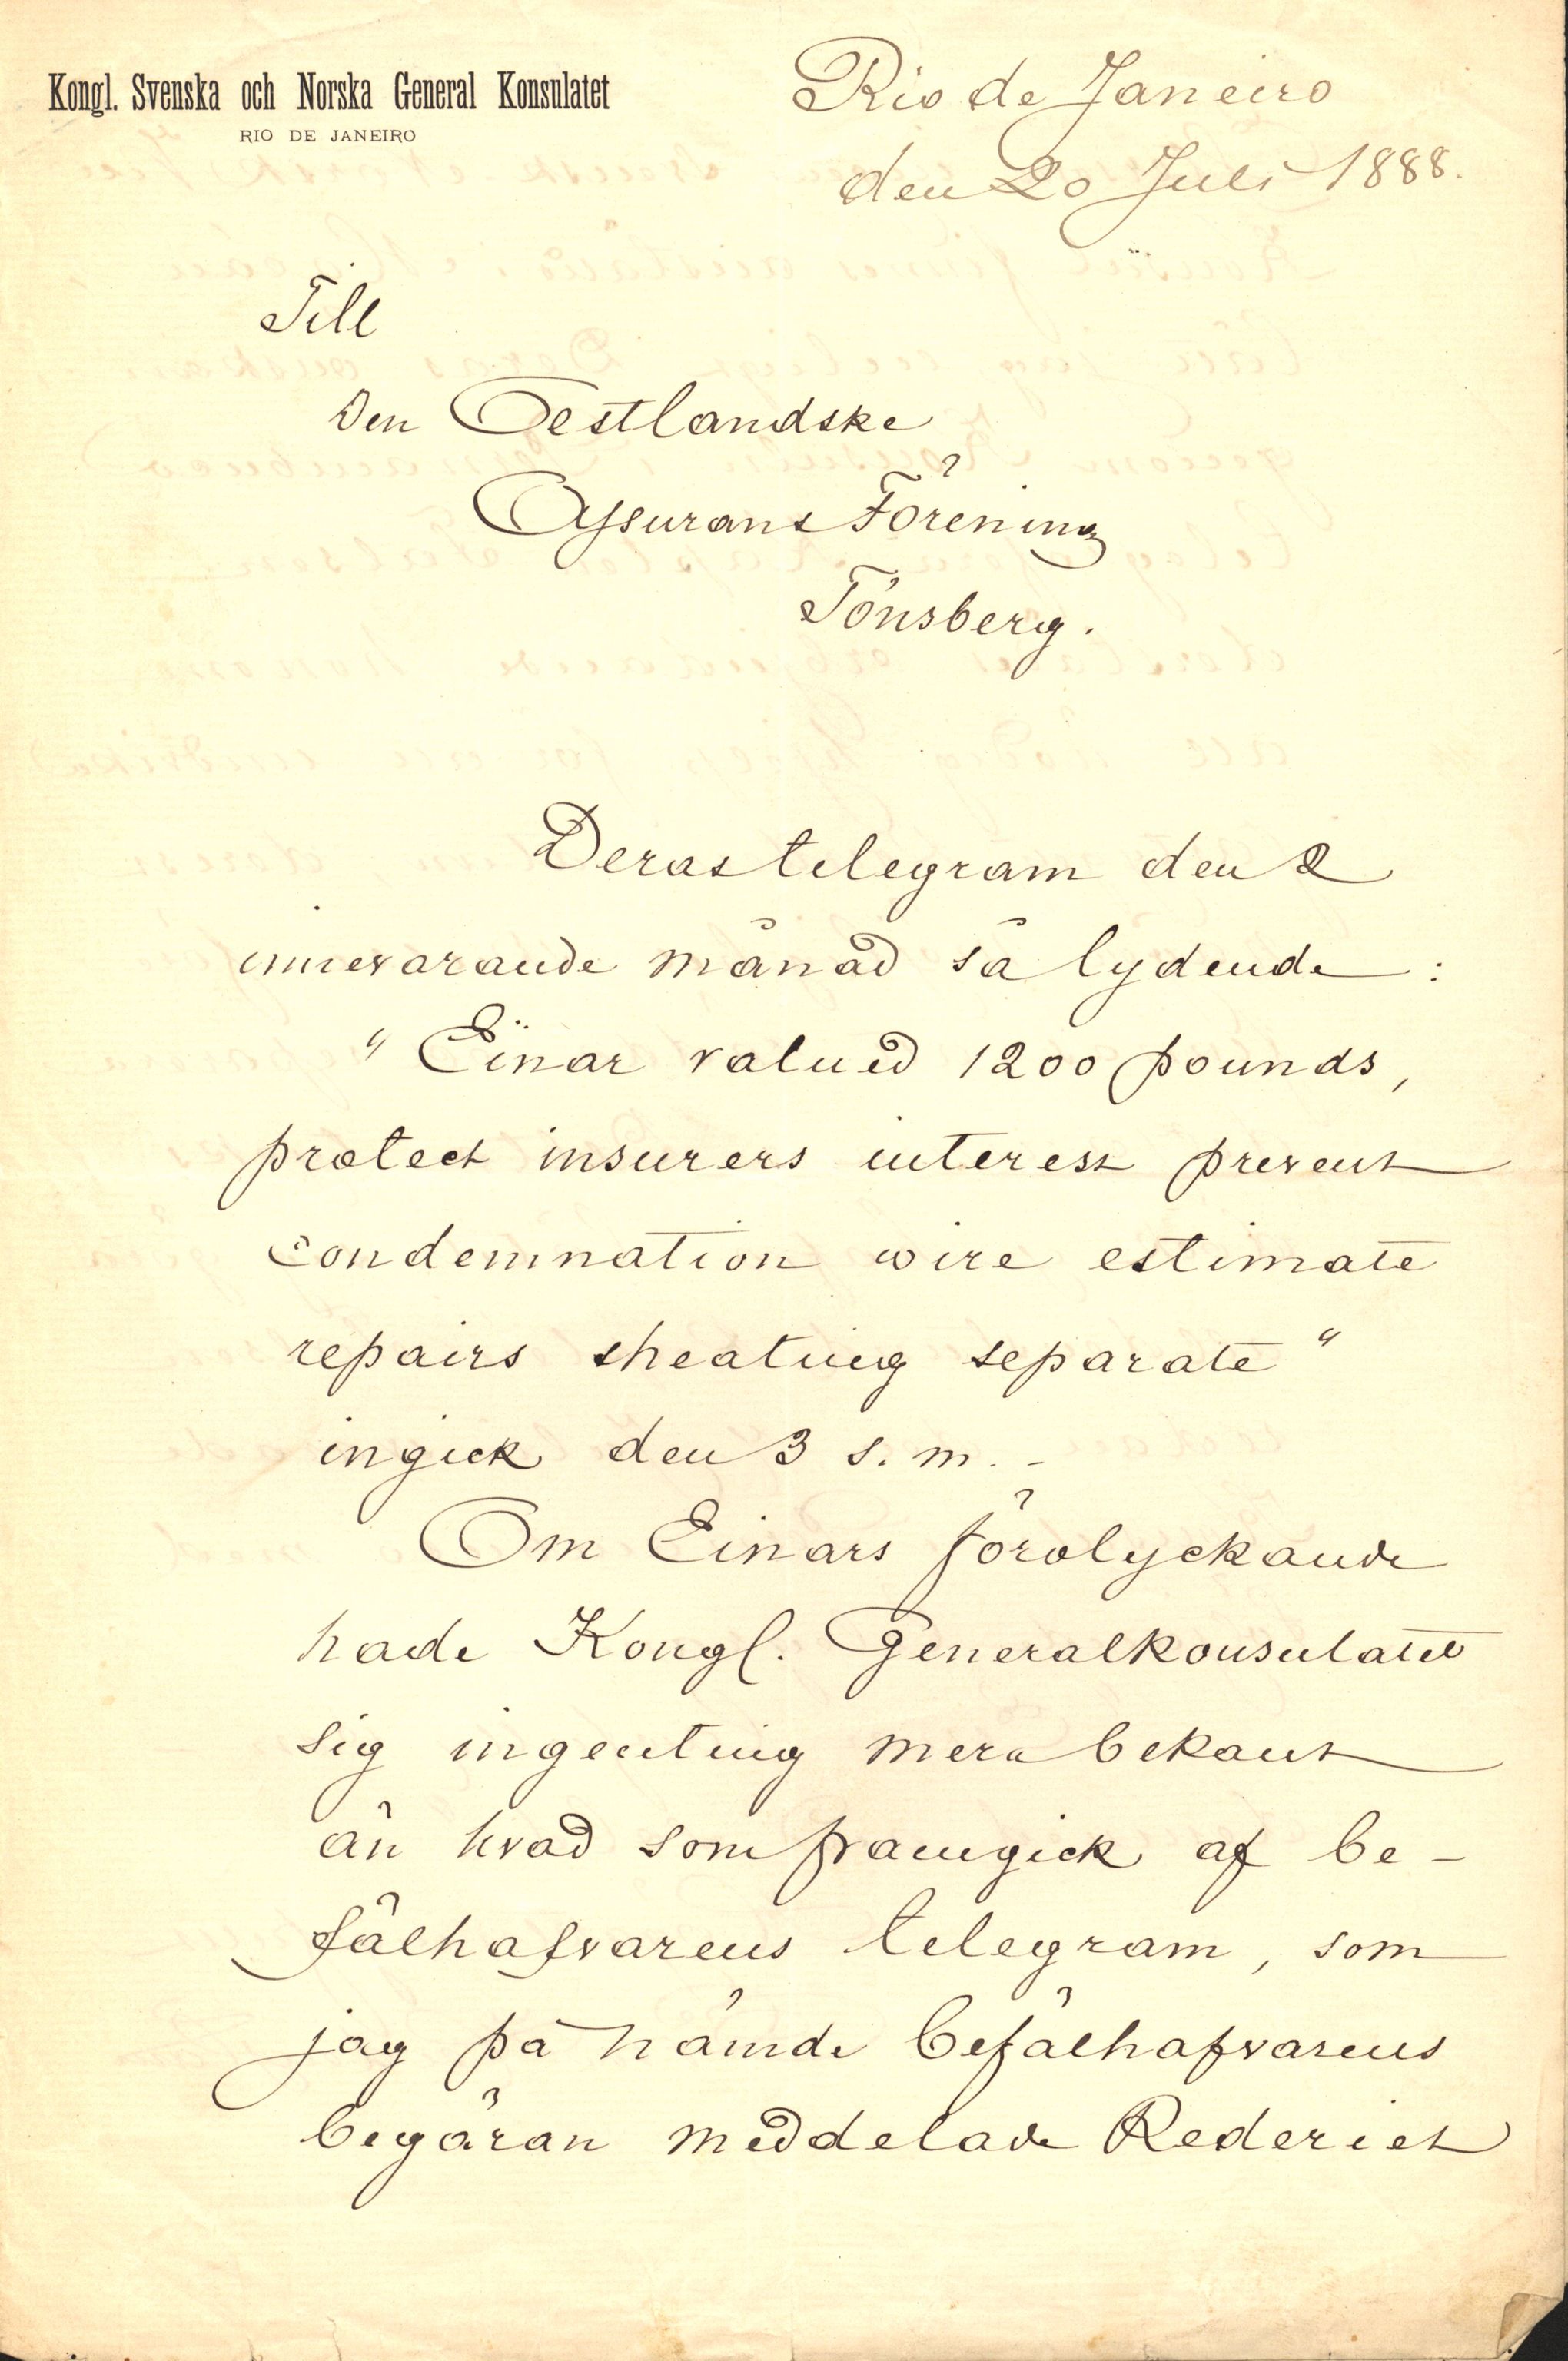 Kongl. Svenska och Norska General Konsulatet
RIO DE JANEIRO
Rio de Janeiro
den 20 Juli 1888.
Till
Den Oestlandske
Assurans Förening
Tönsberg.
Deras telegram den 2
innevarande månad så lydende :
" Einar valued 1200 pounds,
protect insurers interest prevent
condemnation wire estimate
repairs sheating separate "
ingick den 3 s. m. -
Om Einars förolyckande
hade Kongl. Generalkonsulatet
sig ingenting mera bekant
än hvad som framgick af be-
fälhafvarens telegram, som
jag på nämde befälhafvarens
begäran meddelade Rederiet